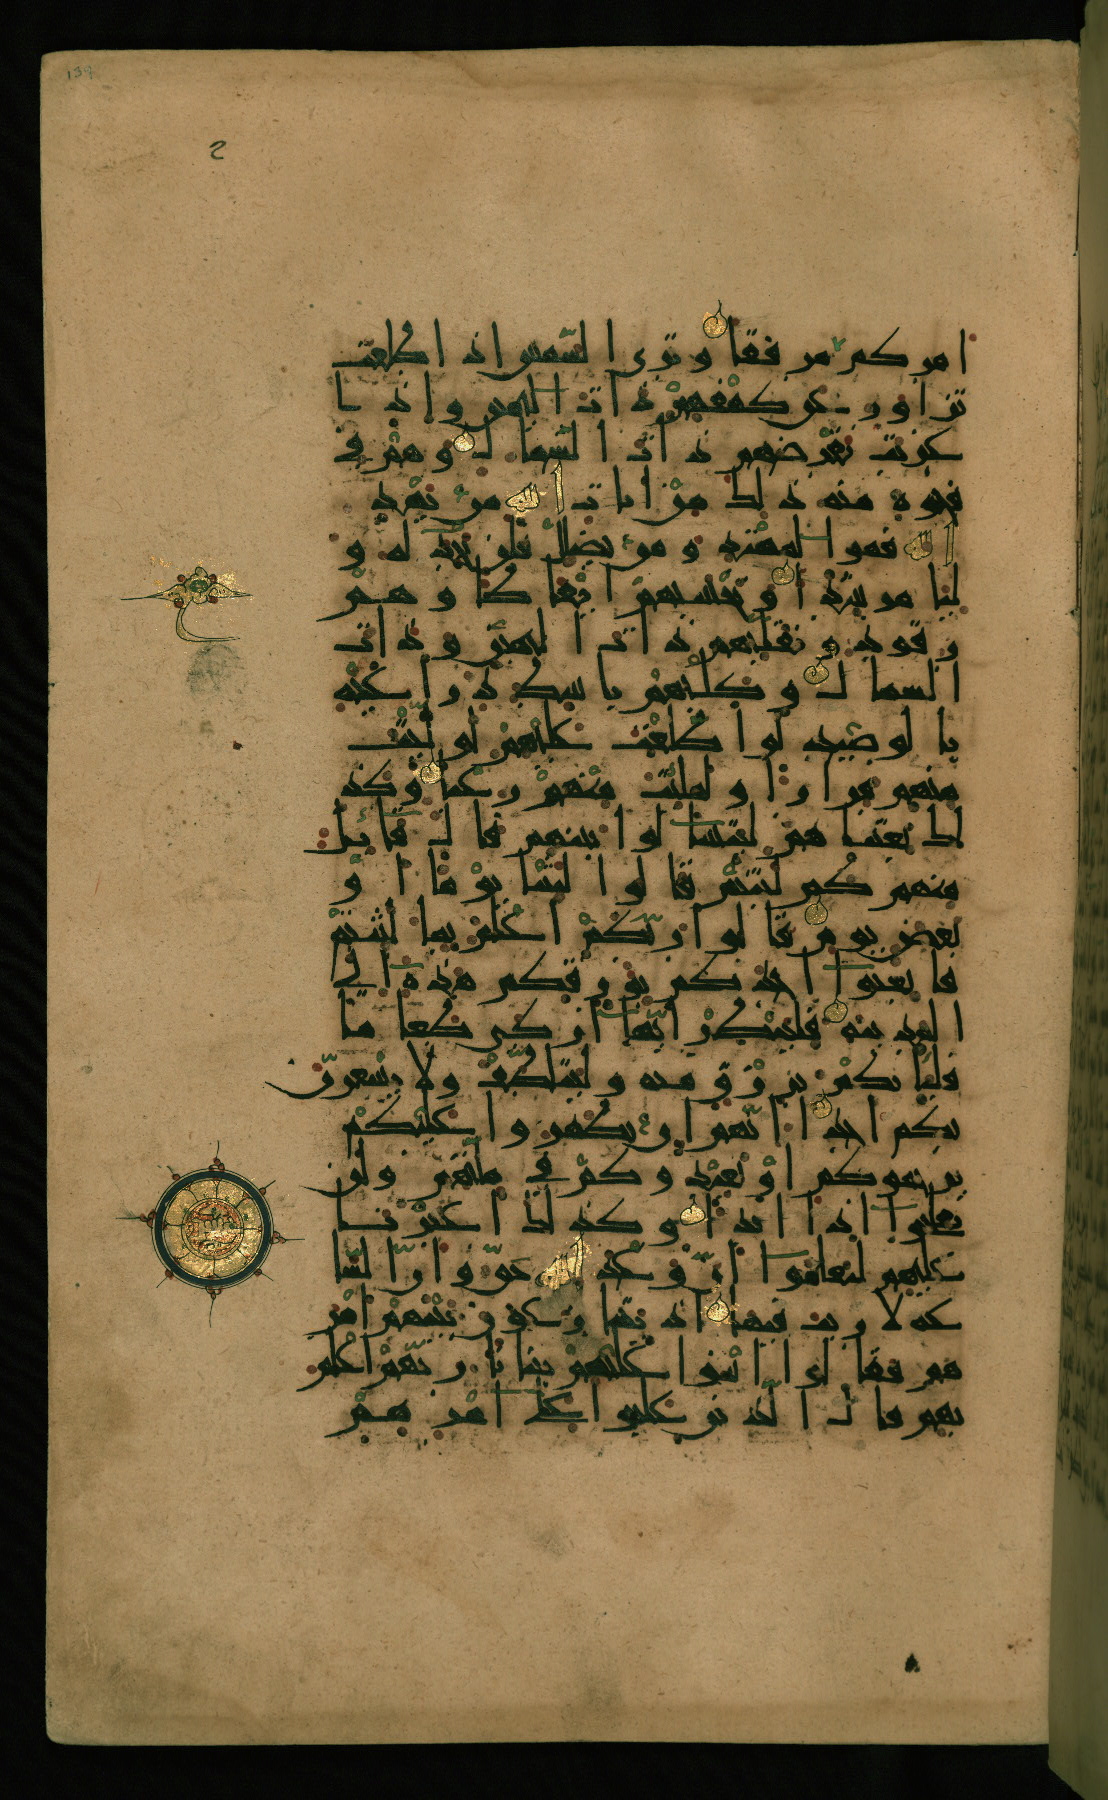 امركم مرفقا وترى الشمس اذا طلعت
تزاور عن كهفهم ذات اليمين واذا
غربت تقرضهم ذات الشمال وهم في
فجوة منه ذلك من ايات الله من يهد
الله فهو المهتد ومن يضلل فلن تجد له و
ليا مرشدا وتحسبهم ايقاظا وهم
رقود ونقلبهم ذات اليمين وذات
الشمال وكلبهم باسط ذراعيه
بالوصيد لو اطلعت عليهم لوليت
منهم فرارا ولملئت منهم رعبا وكذ
لك بعثناهم ليتسالوا بينهم قال قائل
منهم كم لبثتم قالوا لبثنا يوما او
بعض يوم قالوا ربكم اعلم بما لبثتم
فابعثوا احدكم بورقكم هذه الى
المدينة فلينظر ايها ازكى طعاما
فلياتكم برزق منه وليتلطف ولا يشعرن
بكم احدا انهم ان يظهروا عليكم
يرجموكم او يعيدوكم في ملتهم ولن
تفلحوا اذا ابدا وكذلك اعثرنا
عليهم ليعلموا ان وعد الله حق وان السا
عة لا ريب فيها اذ يتنازعون بينهم امر
هم فقالوا ابنوا عليهم بنيانا ربهم اعلم
بهم قال الذين غلبوا على امرهم